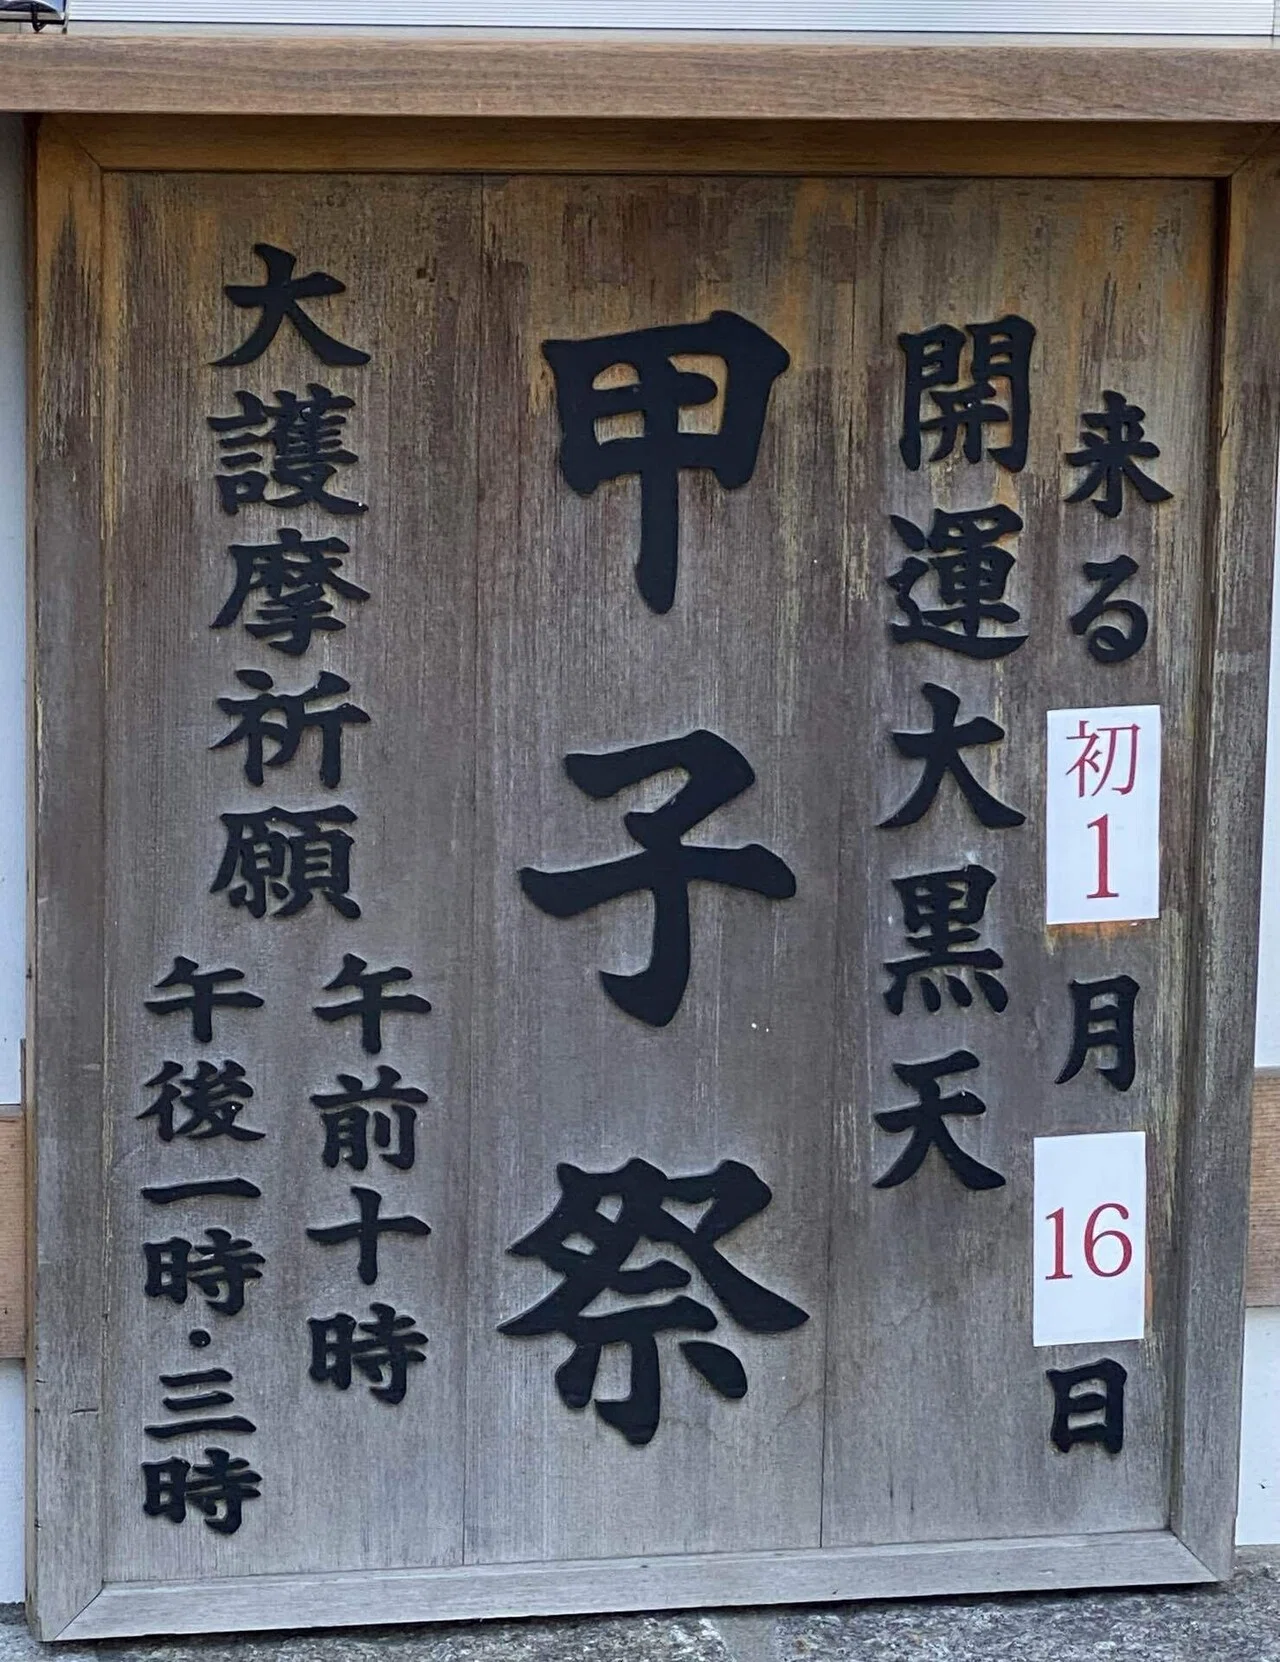 来る初1月16日
開運大黒天
甲子祭
大護摩祈願
午前十時
午後一時・三時